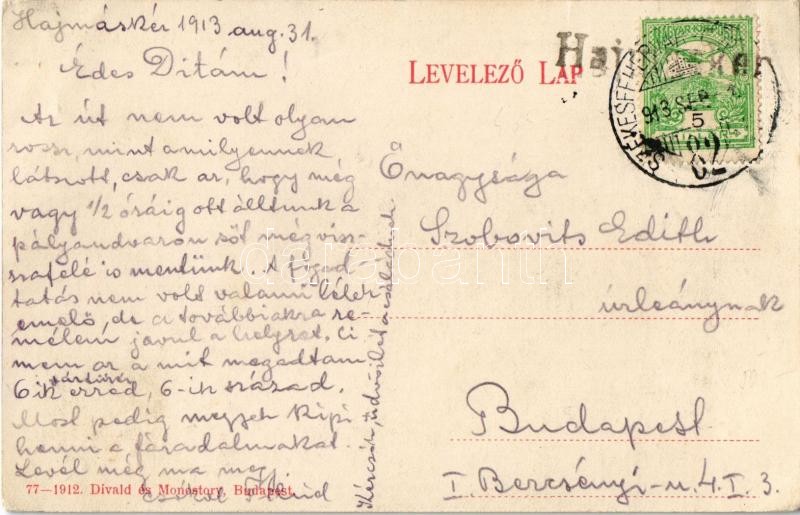 Hajmáskér 1913 aug. 31.
Édes Ditám!
Az út nem volt olyan
rossz, mint amilyennek
látszott, csak az, hogy még
vagy 1/2 óráig ott álltunk a
pályaudvaron sőt még visz-
szafelé is mentünk. A fogad
tatás nem volt valami lélek
emelő, de a továbbiakra re-
mélem javul a helyzet. Ci
mem az a mit megadtam
6ik ezred, 6-ik század.
Most pedig megyek kipi
henni a fáradalmakat.
Levél még ma megy
csókol
Kézcsók, üdvözlet a családnak
LEVELEZŐ LAP
Haj
SZÉKESFEHÉRVÁR
913 SEP
5
82
MAGYAR KIR. POSTA
Őnagysága
Szobovits Edith
úrleánynak
Budapest
I. Bercsényi-u. 4. I. 3.
77—1912. Divald és Monostory, Budapest.
darabanth